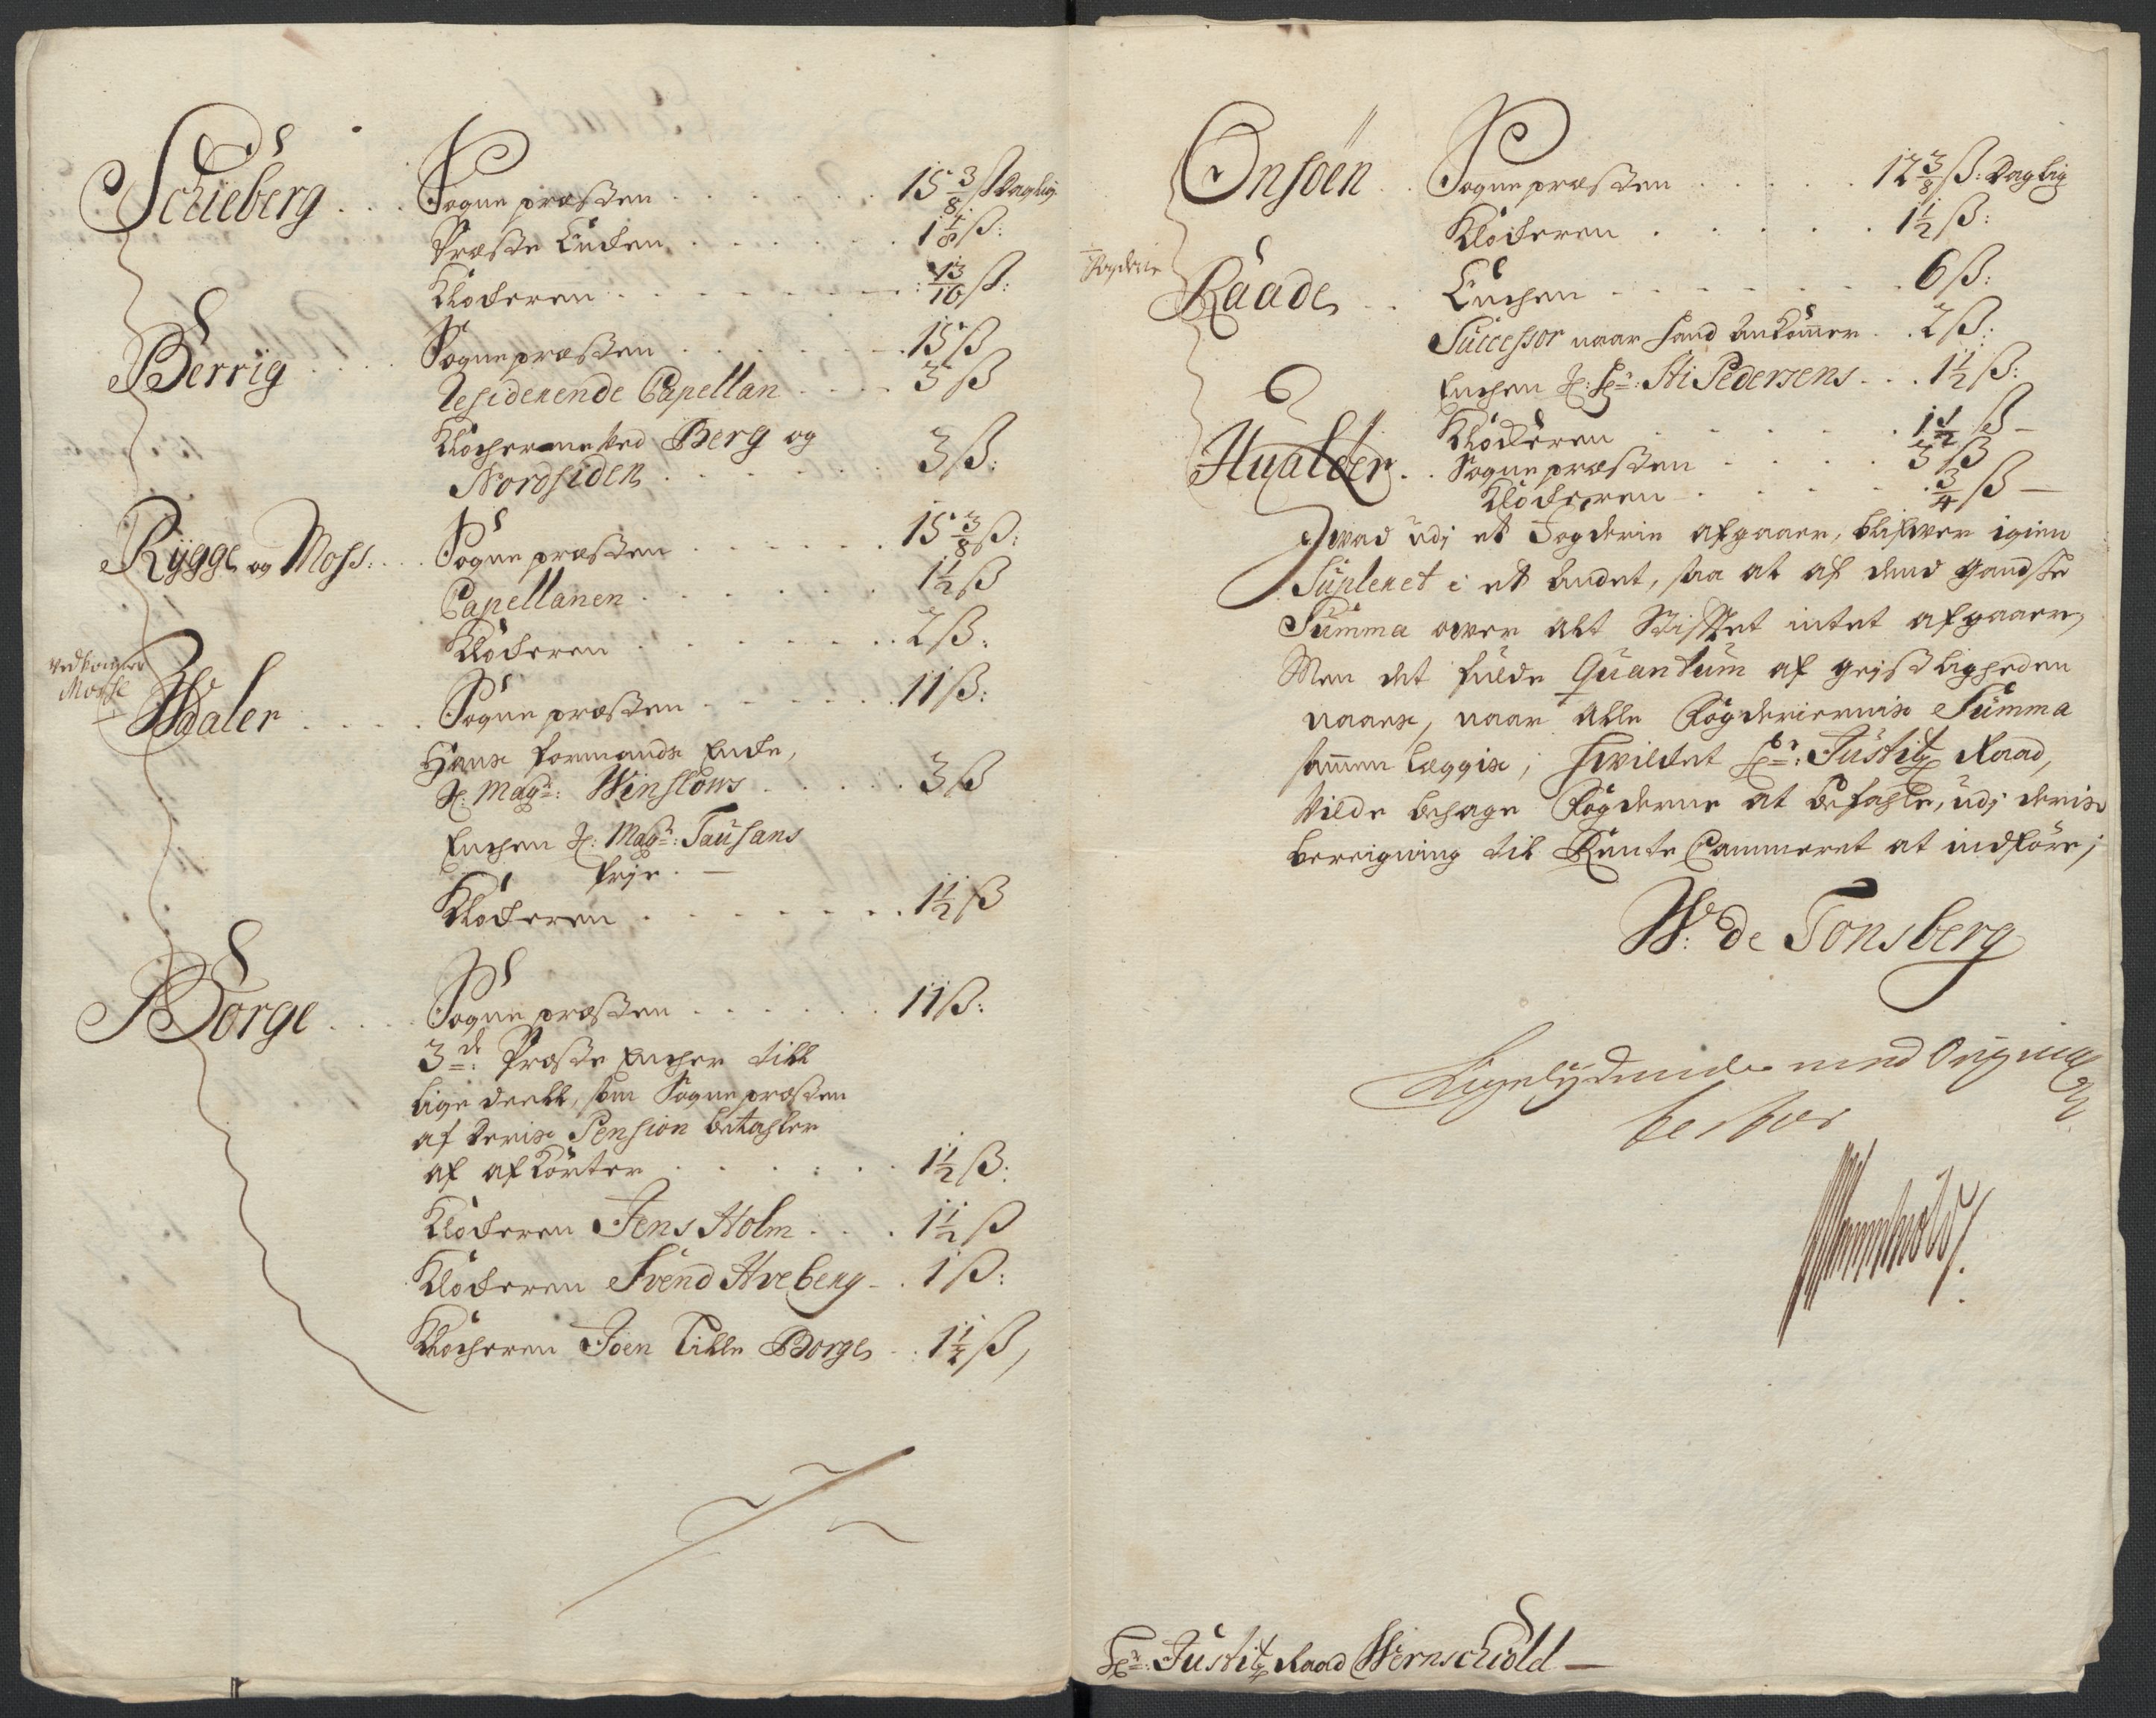 Schieberg . . . Sogne præsten . . . . . . 15 3/8 ß Daglig
Præste Encken . . . . . . 1 1/8 ß:
Klockeren . . . . . . 13/16 ß:
Berrig . . . . Sogne præsten . . . . . . 15 ß
Residerende Capellan . . . . 3 ß
Klockerne ved Berg og
Nordsiden . . . . . . 3 ß:
Rygge og Moss: . . . Sogne præsten . . . . . . 15 3/8 ß:
Capellanen . . . . . . 1 1/2 ß
Klockeren . . . . . . 2 ß:
Mosse
Waler . . . . Sogne præsten . . . . . . 11 ß:
Hans formands Encke,
S: Mag:r Winslows . . . . . 3 ß
Enchen S: Mag:r: Tausans
frje. —
Klockeren . . . . . . 1 1/2 ß
Borge . . . . Sogne præsten . . . . . . 11 ß:
3de: Præste Encher till
lige deell, som Sogne præsten
af deris Pension betahler
af afkorter . . . . . . 1 1/2 ß:
Klockeren Jens Holm . . . . 1 1/2 ß
Klockeren Svend Hveberg . . 1 ß:
Klocheren Joen Lille Borge . . 1 1/2 ß,
Onsöen . . Sogne præsten . . . . . 12 3/8 ß: Daglig
Klockeren . . . . . 1 1/2 ß:
Raade . . Enchen . . . . . . 6 ß:
Successor naar hand ankommer . . 2 ß:
Enchen S: Hr: Sti Pedersens . . . 1 1/2 ß:
Klockeren . . . . . 1 1/2 ß —
Hualöer . . Sogne præsten . . . . 3 ß
Klockeren . . . . . 3/4 ß —
Hvad udj et Fogderie afgaaer, blifver igien
Supleret i et andet, saa at af dend gandske
Summa over alt Stiftet intet afgaaer,
Men det fulde Quantum af geistligheden
naaes, naar alle Fogderiernis Summa
sammen læggis; hvilcket Hr: Justitz Raad,
Vilde behage Fogderne at befahle, udj deris
bereigning til Rente Cammeret at indföre;
W: de Tonsberg
Ligelydende med Original
testor
Hr: Justitz Raad Wernschiold —